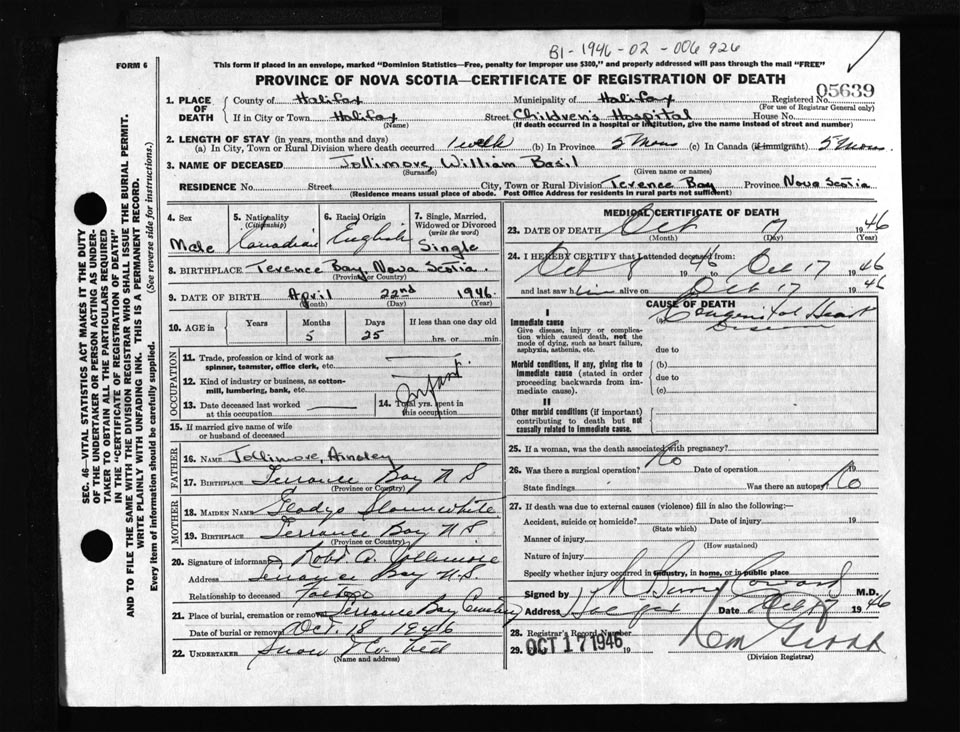 B1-1946-02-006926
FORM 6
This form if placed in an envelope, marked "Dominion Statistics—Free, penalty for improper use $300," and properly addressed will pass through the mail "FREE"
PROVINCE OF NOVA SCOTIA—CERTIFICATE OF REGISTRATION OF DEATH
05639
1. PLACE OF DEATH
County of Halifax Municipality of Halifax Registered No.
(For use of Registrar General only)
If in City or Town Halifax Street Children's Hospital House No.
(Name) (If death occurred in a hospital or institution, give the name instead of street and number)
2. LENGTH OF STAY (in years, months and days)
(a) In City, Town or Rural Division where death occurred 1 week (b) In Province 5 Mons (c) In Canada (if immigrant) 5 Mons.
3. NAME OF DECEASED Jollimore, William Basil
(Surname) (Given name or names)
RESIDENCE No. Street City, Town or Rural Division Terence Bay Province Nova Scotia
(Residence means usual place of abode. Post Office Address for residents in rural parts not sufficient)
SEC. 46—VITAL STATISTICS ACT MAKES IT THE DUTY
OF THE UNDERTAKER OR PERSON ACTING AS UNDER-
TAKER TO OBTAIN ALL THE PARTICULARS REQUIRED
IN THE "CERTIFICATE OF REGISTRATION OF DEATH"
AND TO FILE THE SAME WITH THE DIVISION REGISTRAR WHO SHALL ISSUE THE BURIAL PERMIT.
WRITE PLAINLY WITH UNFADING INK. THIS IS A PERMANENT RECORD.
Every item of information should be carefully supplied. (See reverse side for instructions.)
4. Sex
Male
5. Nationality
(Citizenship)
Canadian
6. Racial Origin
English
7. Single, Married,
Widowed or Divorced
(write the word)
Single
8. BIRTHPLACE Terence Bay, Nova Scotia.
(Province or Country)
9. DATE OF BIRTH April 22nd 1946.
(Month) (Day) (Year)
10. AGE in
Years Months Days If less than one day old
5 25 hrs. or min.
OCCUPATION
11. Trade, profession or kind of work as
spinner, teamster, office clerk, etc.
12. Kind of industry or business, as cotton-
mill, lumbering, bank, etc.
Infant
13. Date deceased last worked
at this occupation
14. Total yrs. spent in
this occupation
15. If married give name of wife
or husband of deceased
FATHER
16. NAME Jollimore, Ainsley
17. BIRTHPLACE Terrance Bay N S
(Province or Country)
MOTHER
18. MAIDEN NAME Gladys Slaunwhite
19. BIRTHPLACE Terrance Bay N.S.
(Province or Country)
20. Signature of informant
Address Terrance Bay N.S.
Relationship to deceased
21. Place of burial, cremation or removal Terrance Bay Cemetery
Date of burial or removal Oct. 18 1946
22. UNDERTAKER Snow & Co. Ltd
(Name and address)
MEDICAL CERTIFICATE OF DEATH
23. DATE OF DEATH Oct 17 1946
(Month) (Day) (Year)
24. I HEREBY CERTIFY that I attended deceased from:
Oct 8 1946 to Oct 17 1946
and last saw him alive on Oct 17 1946
CAUSE OF DEATH
I
Immediate cause
Give disease, injury or complica-
tion which caused death, not the
mode of dying, such as heart failure,
asphyxia, asthenia, etc.
(a) Congenital Heart
Disease
due to
Morbid conditions, if any, giving rise to
immediate cause (stated in order
proceeding backwards from im-
mediate cause).
(b)
due to
(c)
II
Other morbid conditions (if important)
contributing to death but not
causally related to immediate cause.
25. If a woman, was the death associated with pregnancy? No
26. Was there a surgical operation? Date of operation 19
State findings Was there an autopsy? No
27. If death was due to external causes (violence) fill in also the following:—
Accident, suicide or homicide? Date of injury 19
(State which)
Manner of injury
(How sustained)
Nature of injury
Specify whether injury occurred in industry, in home, or in public place
Signed by M.D.
Address Date Oct 17 1946
28. Registrar's Record Number
29. OCT 17 1946 19
(Division Registrar)